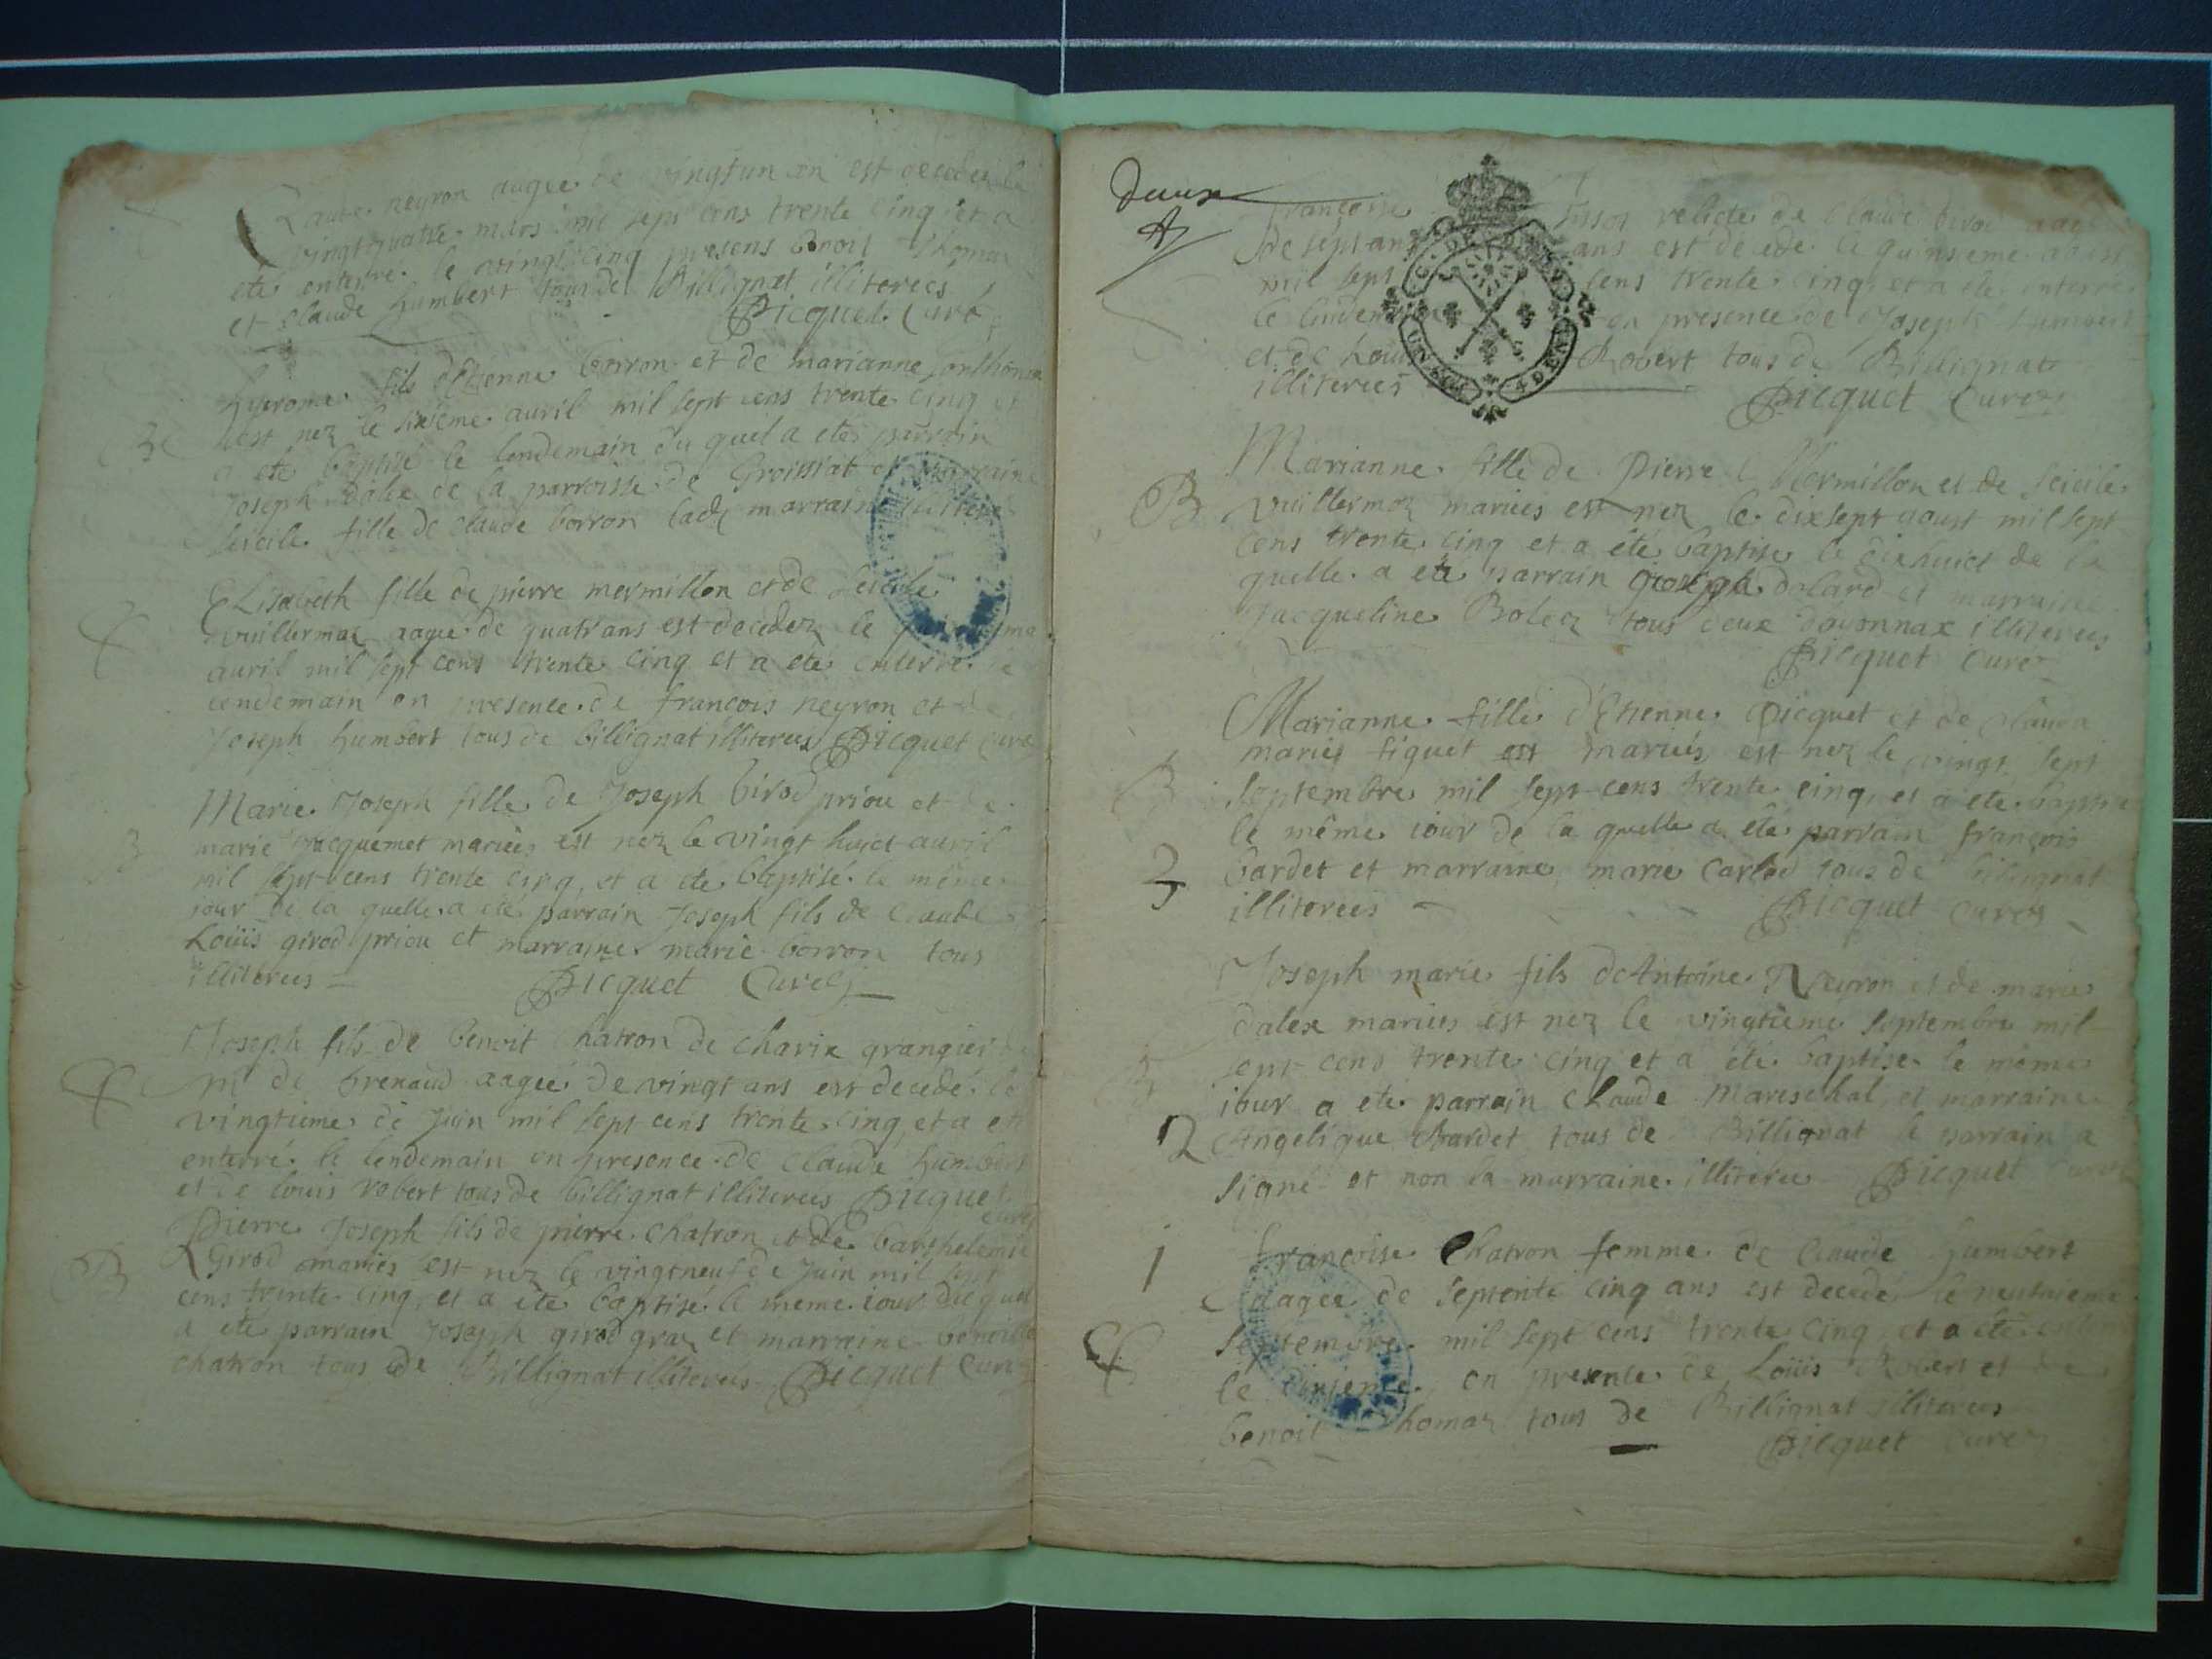 Claude neyron aagée de vingtun an est decedée le
vingtquatre mars mil sept cens trente cinq et a
été enterré le vingt cinq presens Benoit Thomaz
et claude humbert tous de Billignat illiterées
Picquet Curé
fils d'Etienne borron et de marianne
est nez le sixieme auril mil sept cens trente cinq et
a été baptisé le lendemain du quel a eté parrain
Joseph dalex de la parroisse de Groissiat et marraine
Seicile fille de claude borron lad marraine
B
Elisabeth fille de pierre mermillon et de Seicile
vuillermoz aagée de quatr ans est decedez le
auril mil sept cens trente cinq et a eté enterré le
lendemain en presence de francois neyron et de
Joseph humbert tous de billignat illiterees Picquet curé
Marie Joseph fille de Joseph Girod priou et de
marie Jacquemet mariées est nez le vingt huict auril
mil sept cens trente cinq, et a été baptisé le même
jour de la quelle a eté parrain Joseph fils de claude
Loüis girod priou et marraine marie borron tous
illiterees Picquet Curé
B
Joseph fils de benoit Chatron de charix grangier de
mr de brenaud aagée de vingt ans est decedé le
vingtieme de Juin mil sept cens trente cinq, et a eté
enterré le lendemain en presence de claude humbert
et de louis robert tous de billignat illiterees Picquet
curé
Pierre Joseph fils de pierre chatron et de barthelemie
B Girod mariés est nez le vingtneuf de Juin mil sept
cens trente cinq, et a été baptisé le meme iour du quel
a eté parrain Joseph girod graz et marraine benoitte
chatron tous de Billignat illiterees Picquet Curé
deuxe
françoise Tissot relicte de claude Girod aagée
de septan ans est decedé le quinsieme aoust
mil sept cens trente cinq, et a eté enterré
le lendemain en presence de Joseph humbert
et de Louis Robert tous de Billignat
illiterees Picquet Curé
Marianne fille de Pierre Mermillon et de Seicile
B vuillermoz mariées est nez le dixsept aoust mil sept
cens trente cinq et a été baptisé le dixhuict de la
quelle a eté parrain Joseph dolard et marraine
Jacqueline Bolez tous deux doyonnax illiterees
Picquet Curé
Marianne fille d'Etienne Picquet et de Clauda
mariés figuet est mariés est nez le vingt sept
B septembre mil sept cens trente cinq, et a eté baptisé
le même iour de la quelle a eté parrain françois
2 bardet et marraine marie Carlod tous de billignat
illiterees Picquet curé
Joseph marie fils d'Antoine Neyron et de marie
dalex mariées est nez le vingtieme septembre mil
B sept cens trente cinq et a été baptisé le même
iour a eté parrain Claude Mareschal, et marraine
2 Angelique Bardet tous de Billignat le parrain a
signé et non la marraine illiterée Picquet curé
1 françoise Chatron femme de Claude humbert
aagée de septente cinq ans est decedé le neufvieme
septembre mil sept cens trente cinq et a eté enterré
le dixieme en presence de Loüis Robert et de
benoit Thomaz tous de Billignat illiterees
Picquet curé